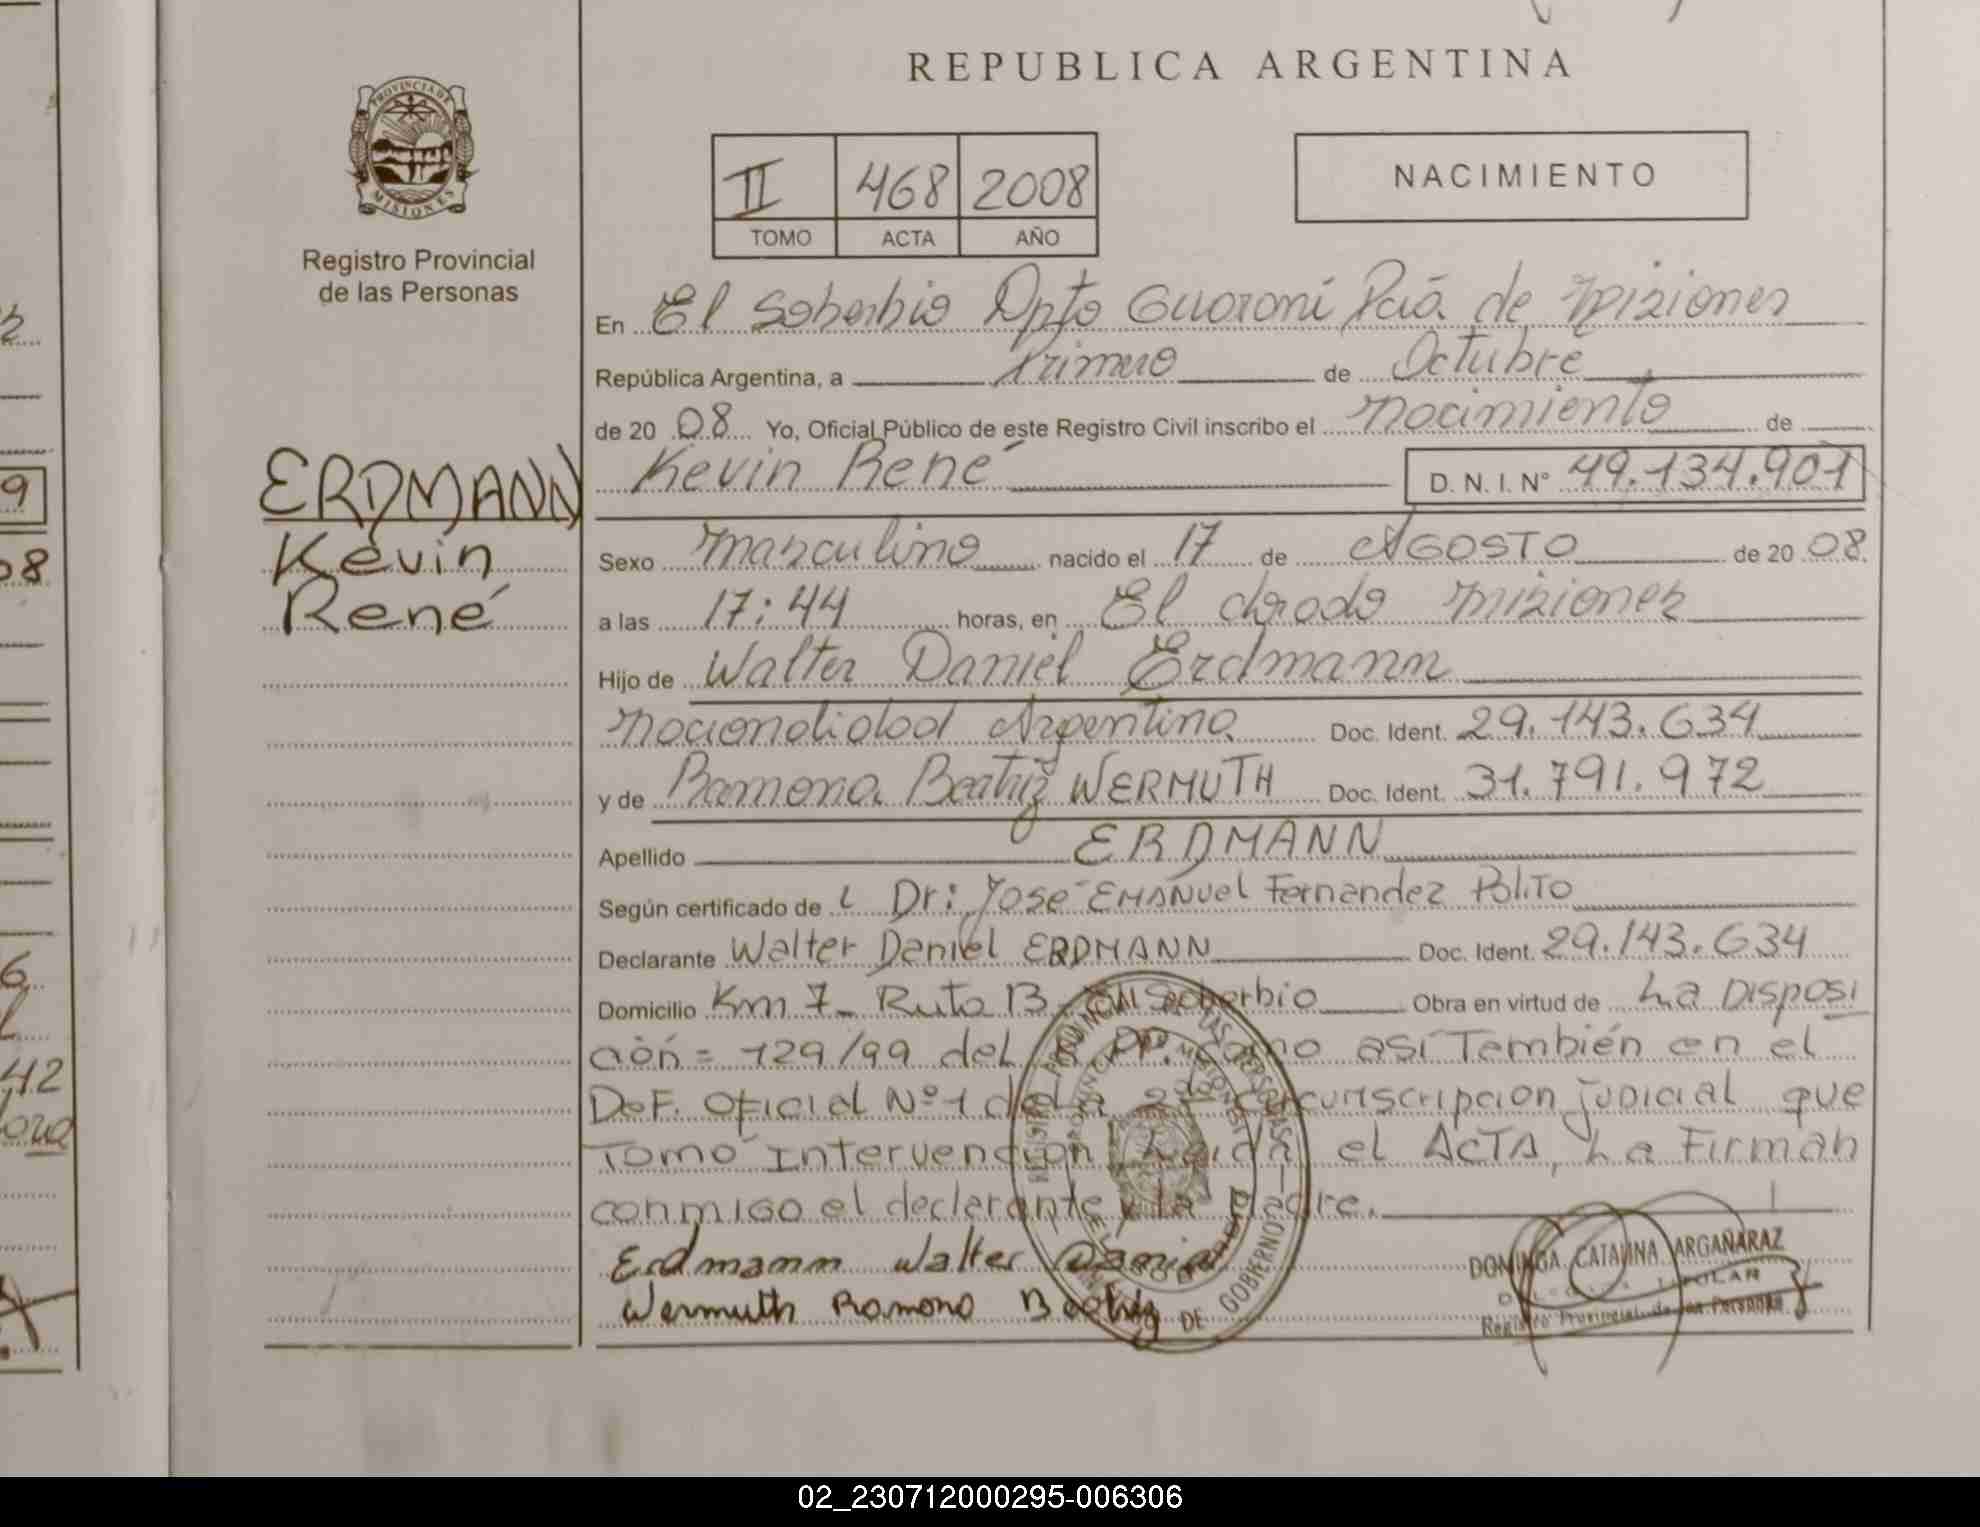 REPUBLICA ARGENTINA
PROVINCIA DE
MISIONES
Registro Provincial
de las Personas
II 468 2008
TOMO ACTA AÑO
NACIMIENTO
En El Soberbio Dpto Guaraní Pcia de Misiones
República Argentina, a Primero de Octubre
de 2008 Yo, Oficial Público de este Registro Civil inscribo el nacimiento de
ERDMANN
Kevin
René
Kevin René D.N.I. Nº 49.134.901
Sexo masculino nacido el 17 de AGOSTO de 2008
a las 17:44 horas, en El dorado Misiones
Hijo de Walter Daniel Erdmann
nacionalidad Argentina Doc. Ident. 29.143.634
y de Ramona Beatriz WERMUTH Doc. Ident. 31.791.972
Apellido ERDMANN
Según certificado de L Dr: José EMANUEL Fernandez POLITO
Declarante Walter Daniel ERDMANN Doc. Ident. 29.143.634
Domicilio Km 7_ Ruta 13 El Soberbio Obra en virtud de La Disposi
ción = 129/99 del como así También en el
Def. Oficial Nº 1 de la 2da circunscripcion judicial que
Tomó Intervención Leída el ACTA, La Firman
conmigo el declarante y la Madre.
Erdmann Walter Daniel
Wermuth Ramona Beatriz
DOMINGA CATALINA ARGAÑARAZ
Registro Provincial de las Personas
9
08
6
42
02_230712000295-006306